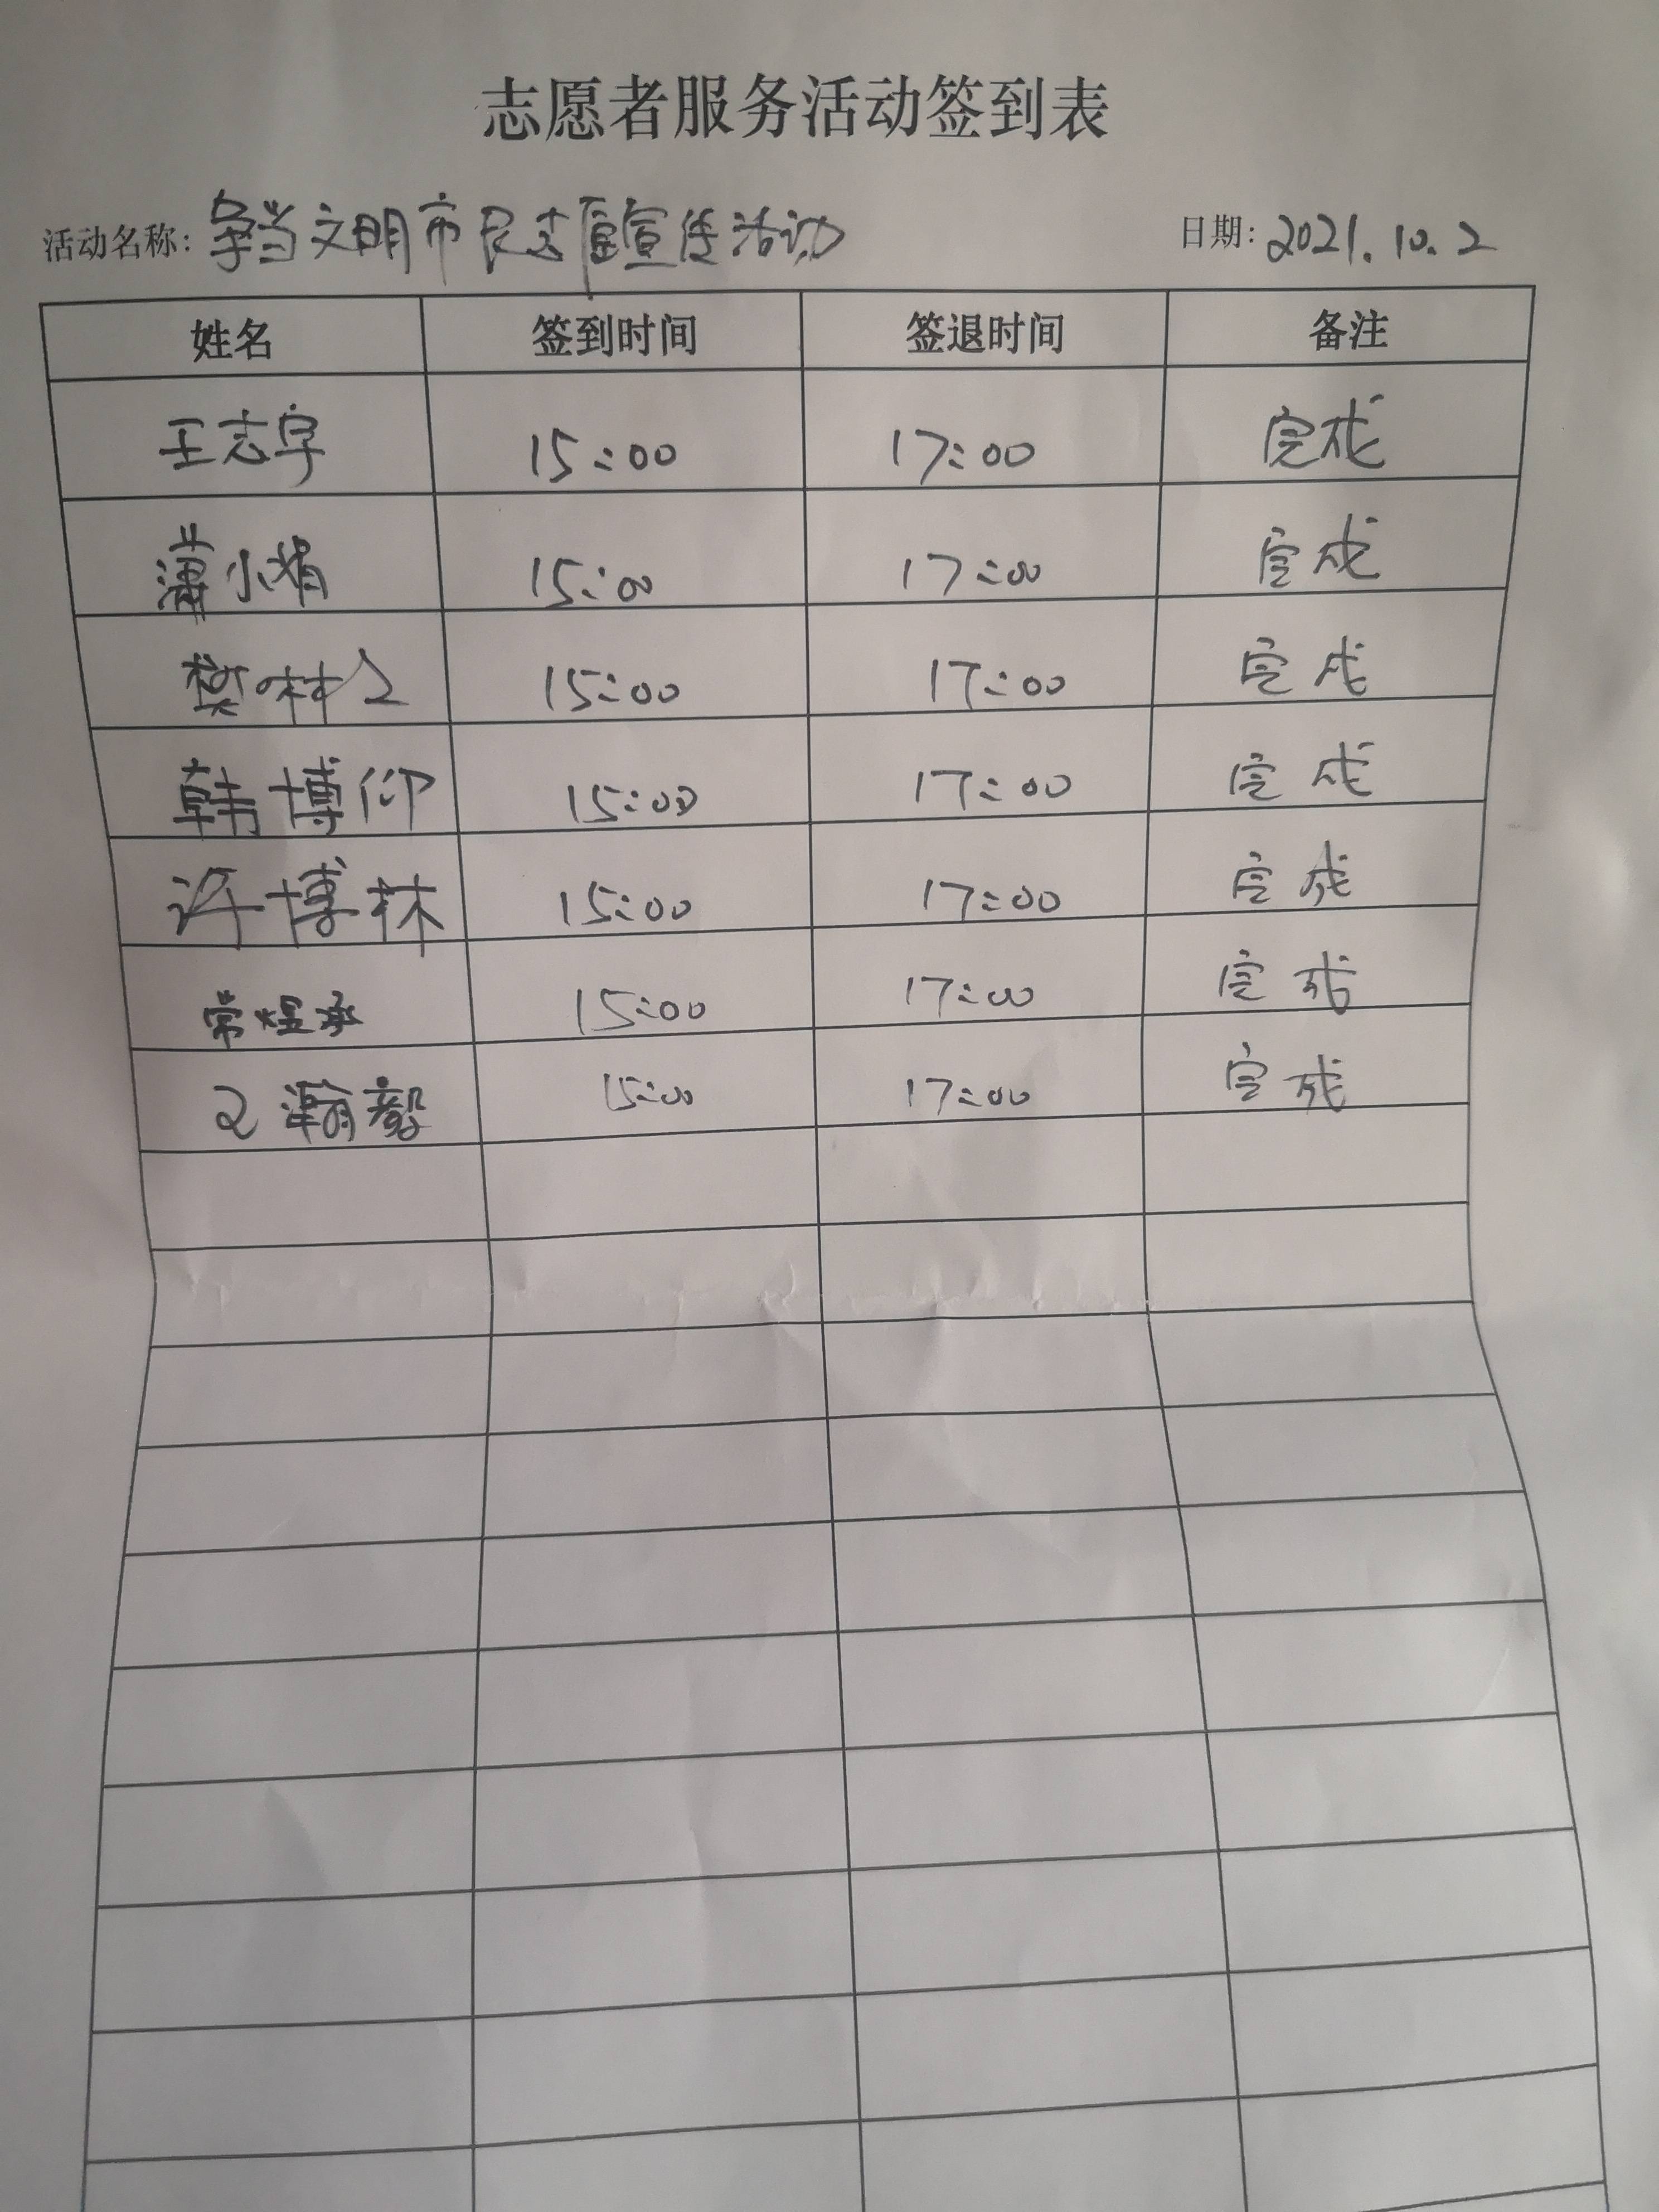 志愿者服务活动签到表
活动名称: 争当文明市民志愿宣传活动 日期: 2021.10.2
姓名 签到时间 签退时间 备注
王志宇 15:00 17:00 完成
小娟 15:00 17:00 完成
樊林 15:00 17:00 完成
韩博仰 15:00 17:00 完成
许博林 15:00 17:00 完成
常煜承 15:00 17:00 完成
瀚毅 15:00 17:00 完成